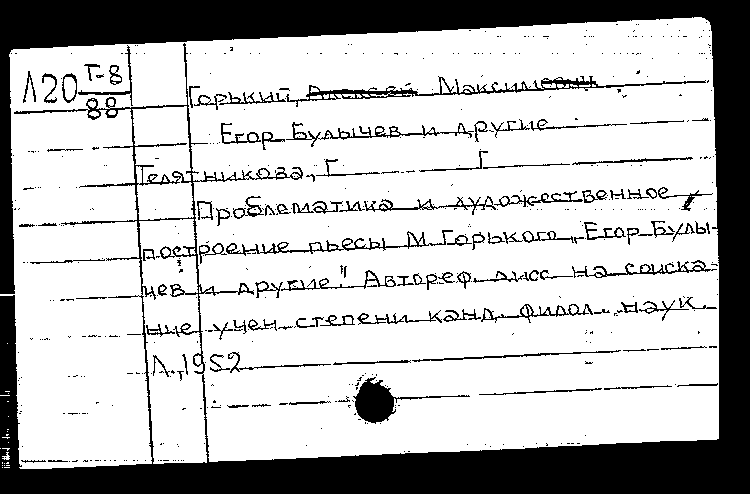 Л20 Т-8
88
Горький, Алексей Максимович
Егор Булычев и другие
Телятникова, Г Г
Проблематика и художественное
построение пьесы М. Горького „Егор Булы-
чев и другие". Автореф. дисс. на соиска-
ние учен. степени канд. филол. наук.
Л., 1952